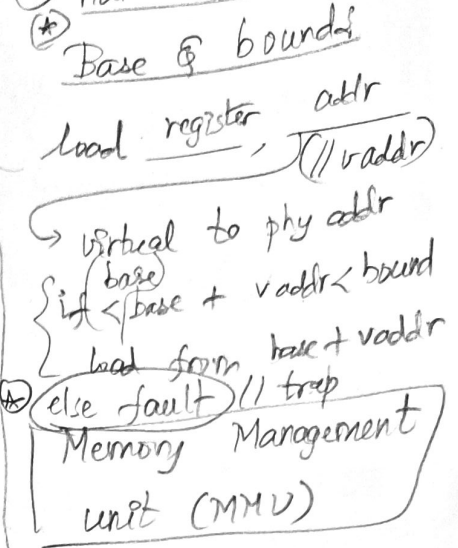 Base & bounds
load register, addr
(// vaddr)
virtual to phy addr
(base)
if < base + vaddr < bound
load from base + vaddr
else fault // trap
Memory Management
unit (MMU)